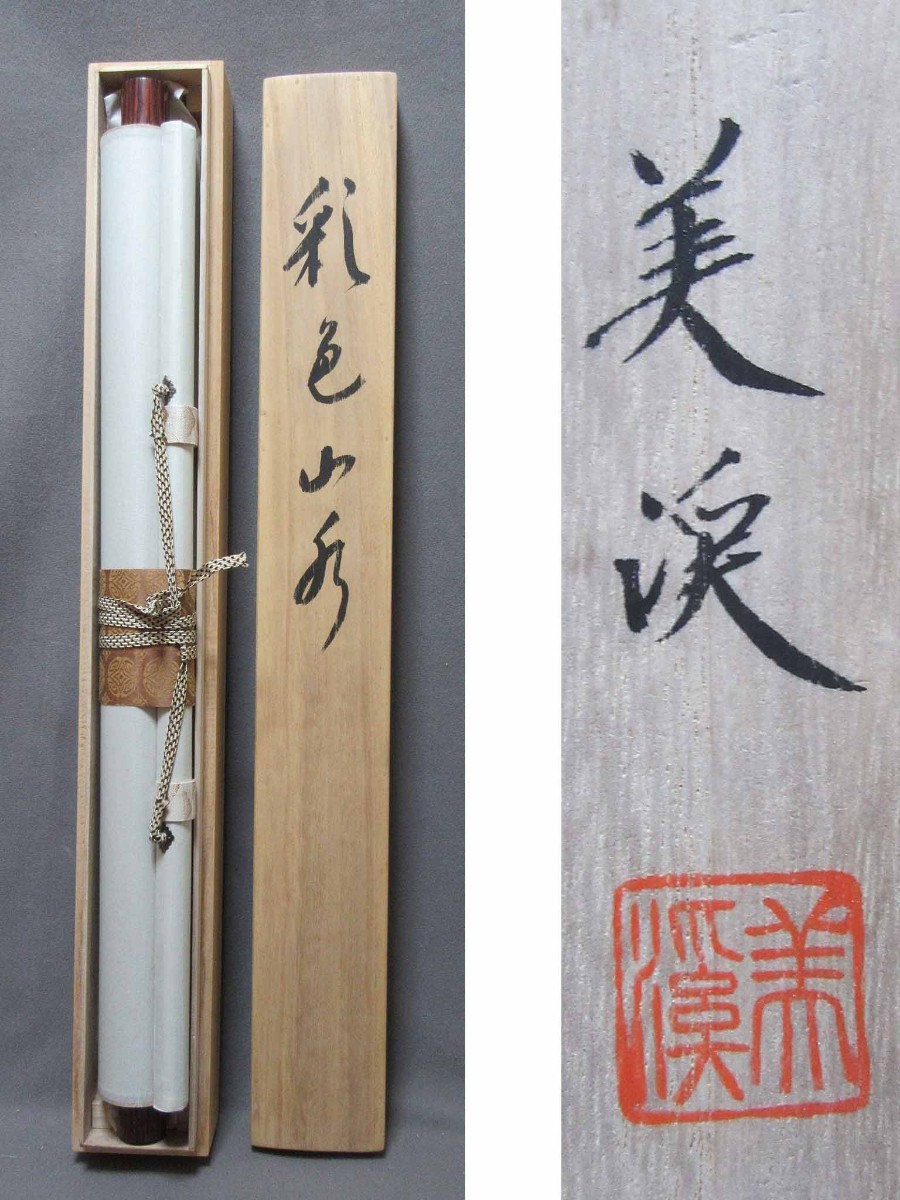 彩色山水
美渓
美溪